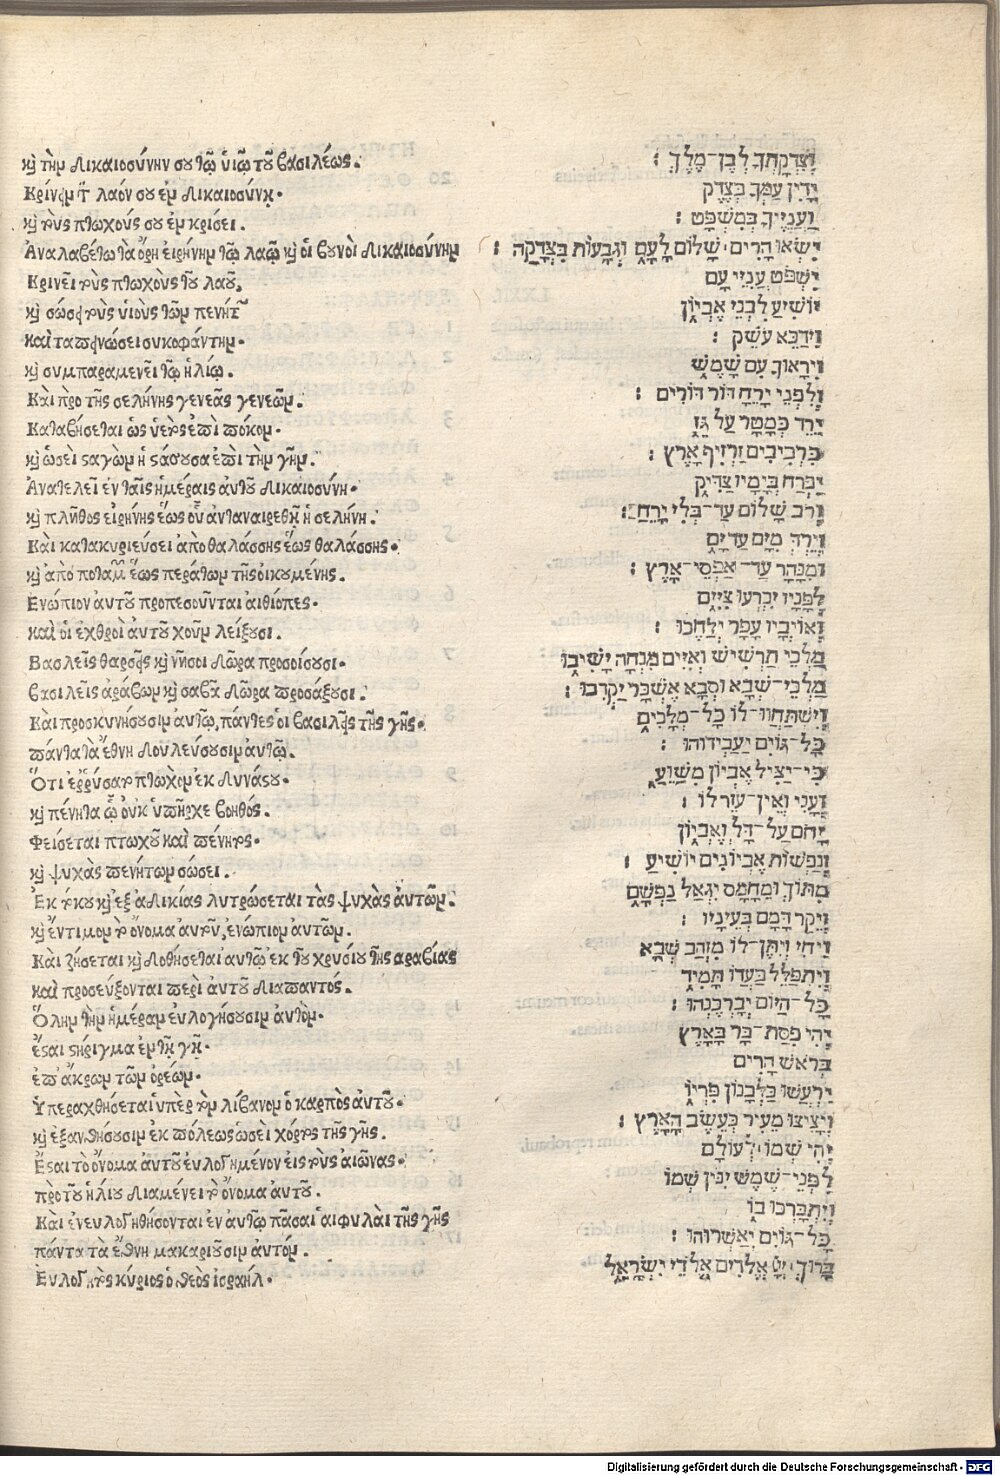 ϗ τὴν δικαιοσύνην σου τῷ ὑιῷ τοῦ βασιλέως.
Κρίνειν τὸν λαόν σου ἐν δικαιοσύνῃ.
ϗ τοὺς πτωχούς σου ἐν κρίσει.
Ἀναλαβέτω τὰ ὄρη ἐιρήνην τῷ λαῷ ϗ ὁι βουνὸι δικαιοσύνην
Κρινεῖ τοὺς πτωχοὺς τοῦ λαοῦ,
ϗ σώσει τοὺς ὑιοὺς τῶν πενήτων
καὶ ταπεινώσει συκοφάντην.
ϗ συμπαραμενεῖ τῷ ἡλίῳ.
Καὶ προ τῆς σελήνης γενεᾶς γενεῶν.
Καταβήσεται ὡς ὑετὸς ἐπὶ πόκον.
ϗ ὡσεὶ σαγὼν ἡ στάζουσα ἐπὶ τὴν γῆν.
Ἀνατελεῖ ἐν ταῖς ἡμέραις ἀυτοῦ δικαιοσύνη.
ϗ πλῆθος ἐιρήνης ἕως οὗ ἀνταναιρεθῇ ἡ σελήνη.
Καὶ κατακυριεύσει ἀπο θαλάσσης ἕως θαλάσσης.
ϗ ἀπὸ ποταμῶν ἕως περάτων τῆς ὀικουμένης.
Ενώπιον ἀυτοῦ προπεσοῦνται ἀιθίοπες.
καὶ ὁι ἐχθροὶ ἀυτοῦ χοῦν λείξουσι.
Βασλεῖς θαρσεῖς ϗ νῆσοι δῶρα προσοίσουσι.
βασιλεῖς ἀράβων ϗ σαβᾶ δῶρα προσάξουσι.
Καὶ προσκυνήσουσιν ἀυτῷ, πάντες ὁι βασιλεῖς τῆς γῆς.
πάντα τὰ ἔθνη δουλεύσουσιν ἀυτῷ.
Ὅτι ἐῤῥύσατο πτωχὸν ἐκ δυνάστου.
ϗ πένητα ᾧ ὀυκ ὑπῆρχε βοηθός.
Φείσεται πτωχοῦ καὶ πένητος.
ϗ ψυχὰς πενήτων σώσει.
Ἐκ τόκου ϗ ἐξ ἀδικίας λυτρώσεται τὰς ψυχὰς ἀυτῶν.
ϗ ἔντιμον τὸ ὄνομα ἀυτοῦ, ἐνώπιον ἀυτῶν.
Καὶ ζήσεται ϗ δοθήσεται ἀυτῷ ἐκ τοῦ χρυσίου τῆς αραβίας
καὶ προσεύξονται περὶ ἀυτοῦ διαπαντος.
Ὅλην τὴν ἡμέραν ἐυλογήσουσιν ἀυτόν.
ἔσται στήριγμα ἐν τῇ γῇ.
ἐπ' ἄκρων τῶν ὀρέων.
Ὑπεραχθήσεται ὑπὲρ τὸν λίβανον ὁ καρπὸς ἀυτοῦ.
ϗ ἐξανθήσουσιν ἐκ πόλεως ὡσεὶ χόρτος τῆς γῆς.
Ἔσται τὸ ὄνομα ἀυτοῦ ἐυλογημένον ἐις τοὺς αἰῶνας.
πρὸ τοῦ ἡλίου διαμένει τὸ ὄνομα ἀυτοῦ.
Καὶ ἐνευλογηθήσονται ἐν ἀυτῷ πᾶσαι ἁι φυλαὶ τῆς γῆς
πάντα τὰ ἔθνη μακαριοῦσιν ἀυτόν.
Ἐυλογητὸς κύριος ὁ θεὸς ἰσραήλ.
וְצִדְקָתְךָ לְבֶן־מֶלֶךְ :
יָדִין עַמְּךָ בְצֶדֶק
וַעֲנִיֶּיךָ בְמִשְׁפָּט :
יִשְׂאוּ הָרִים שָׁלוֹם לָעָם וּגְבָעוֹת בִּצְדָקָה :
יִשְׁפֹּט עֲנִיֵּי עָם
יוֹשִׁיעַ לִבְנֵי אֶבְיוֹן
וִידַכֵּא עֹשֵׁק :
יִירָאוּךָ עִם שָׁמֶשׁ
וְלִפְנֵי יָרֵחַ דּוֹר דּוֹרִים :
יֵרֵד כְּמָטָר עַל גֵּז
כִּרְבִיבִים זַרְזִיף אָרֶץ :
יִפְרַח בְּיָמָיו צַדִּיק
וְרֹב שָׁלוֹם עַד־בְּלִי יָרֵחַ :
וְיֵרְדְּ מִיָּם עַד יָם
וּמִנָּהָר עַד־אַפְסֵי־אָרֶץ :
לְפָנָיו יִכְרְעוּ צִיִּים
וְאוֹיְבָיו עָפָר יְלַחֵכוּ :
מַלְכֵי תַרְשִׁישׁ וְאִיִּים מִנְחָה יָשִׁיבוּ
מַלְכֵי־שְׁבָא וּסְבָא אֶשְׁכָּר יַקְרִבוּ :
וְיִשְׁתַּחֲווּ־לוֹ כָל־מְלָכִים
כָּל־גּוֹיִם יַעַבְידוּהוּ :
כִּי־יַצִּיל אֶבְיוֹן מְשַׁוֵּעַ
וְעָנִי וְאֵין־עֹזֵר לוֹ :
יָחֹם עַל־דַּל וְאֶבְיוֹן
וְנַפְשׁוֹת אֶבְיוֹנִים יוֹשִׁיעַ :
מִתּוֹךְ וּמֵחָמָס יִגְאַל נַפְשָׁם
וְיֵיקַר דָּמָם בְּעֵינָיו :
וִיחִי וְיִתֶּן־לוֹ מִזְּהַב שְׁבָא
וְיִתְפַּלֵּל בַּעֲדוֹ תָמִיד
כָּל־הַיּוֹם יְבָרְכֶנְהוּ :
יְהִי פִסַּת־בַּר בָּאָרֶץ
בְּרֹאשׁ הָרִים
יִרְעַשׁ כַּלְּבָנוֹן פִּרְיוֹ
וְיָצִיצוּ מֵעִיר כְּעֵשֶׂב הָאָרֶץ :
יְהִי שְׁמוֹ לְעוֹלָם
לִפְנֵי־שֶׁמֶשׁ יִנִּין שְׁמוֹ
וְיִתְבָּרְכוּ בוֹ
כָּל־גּוֹיִם יְאַשְּׁרוּהוּ :
בָּרוּךְ יְיָ אֱלֹדִים אֱלֹדֵי יִשְׂרָאֵל
Digitalisierung gefördert durch die Deutsche Forschungsgemeinschaft - DFG